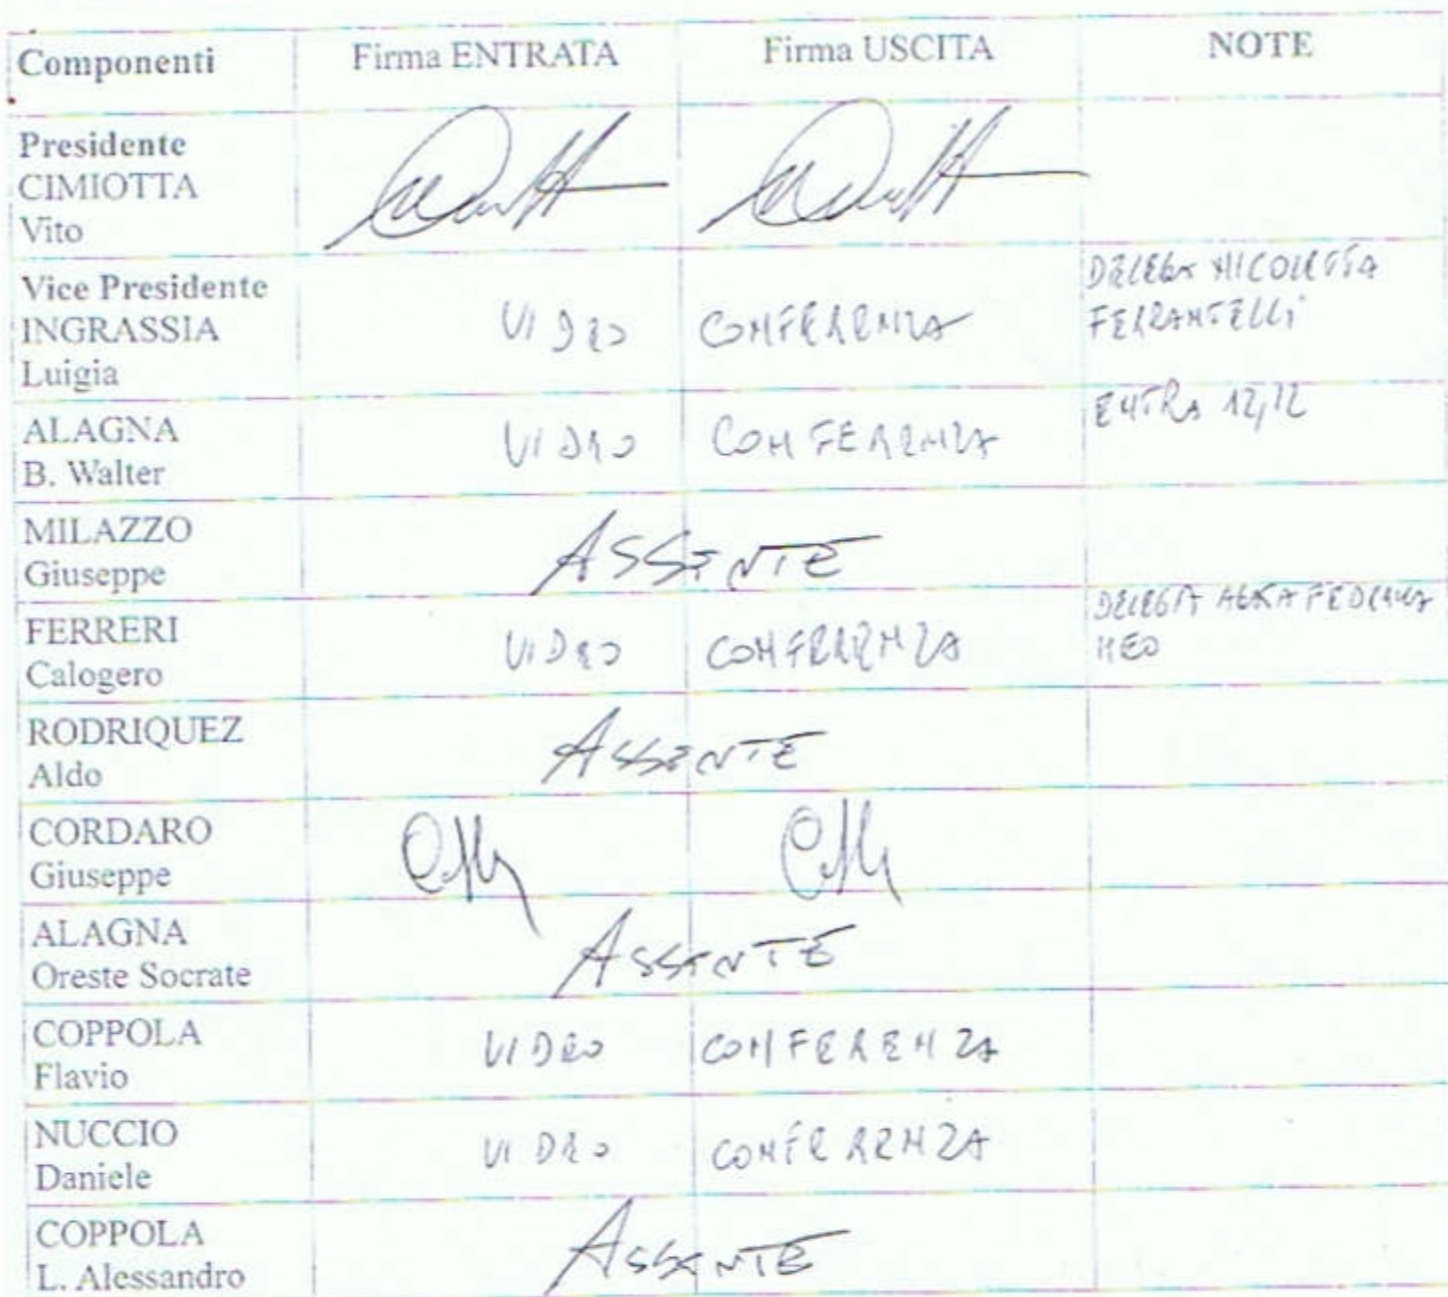 Componenti Firma ENTRATA Firma USCITA NOTE
Presidente
CIMIOTTA
Vito
Vice Presidente
INGRASSIA
Luigia
VIDEO CONFERENZA
DELEGA NICOLETTA
FERRANTELLI
ALAGNA
B. Walter
VIDEO CONFERENZA
ENTRA 12,12
MILAZZO
Giuseppe
ASSENTE
FERRERI
Calogero
VIDEO CONFERENZA
DELEGA FEDERICA
MEO
RODRIQUEZ
Aldo
ASSENTE
CORDARO
Giuseppe
ALAGNA
Oreste Socrate
ASSENTE
COPPOLA
Flavio
VIDEO CONFERENZA
NUCCIO
Daniele
VIDEO CONFERENZA
COPPOLA
L. Alessandro
ASSENTE